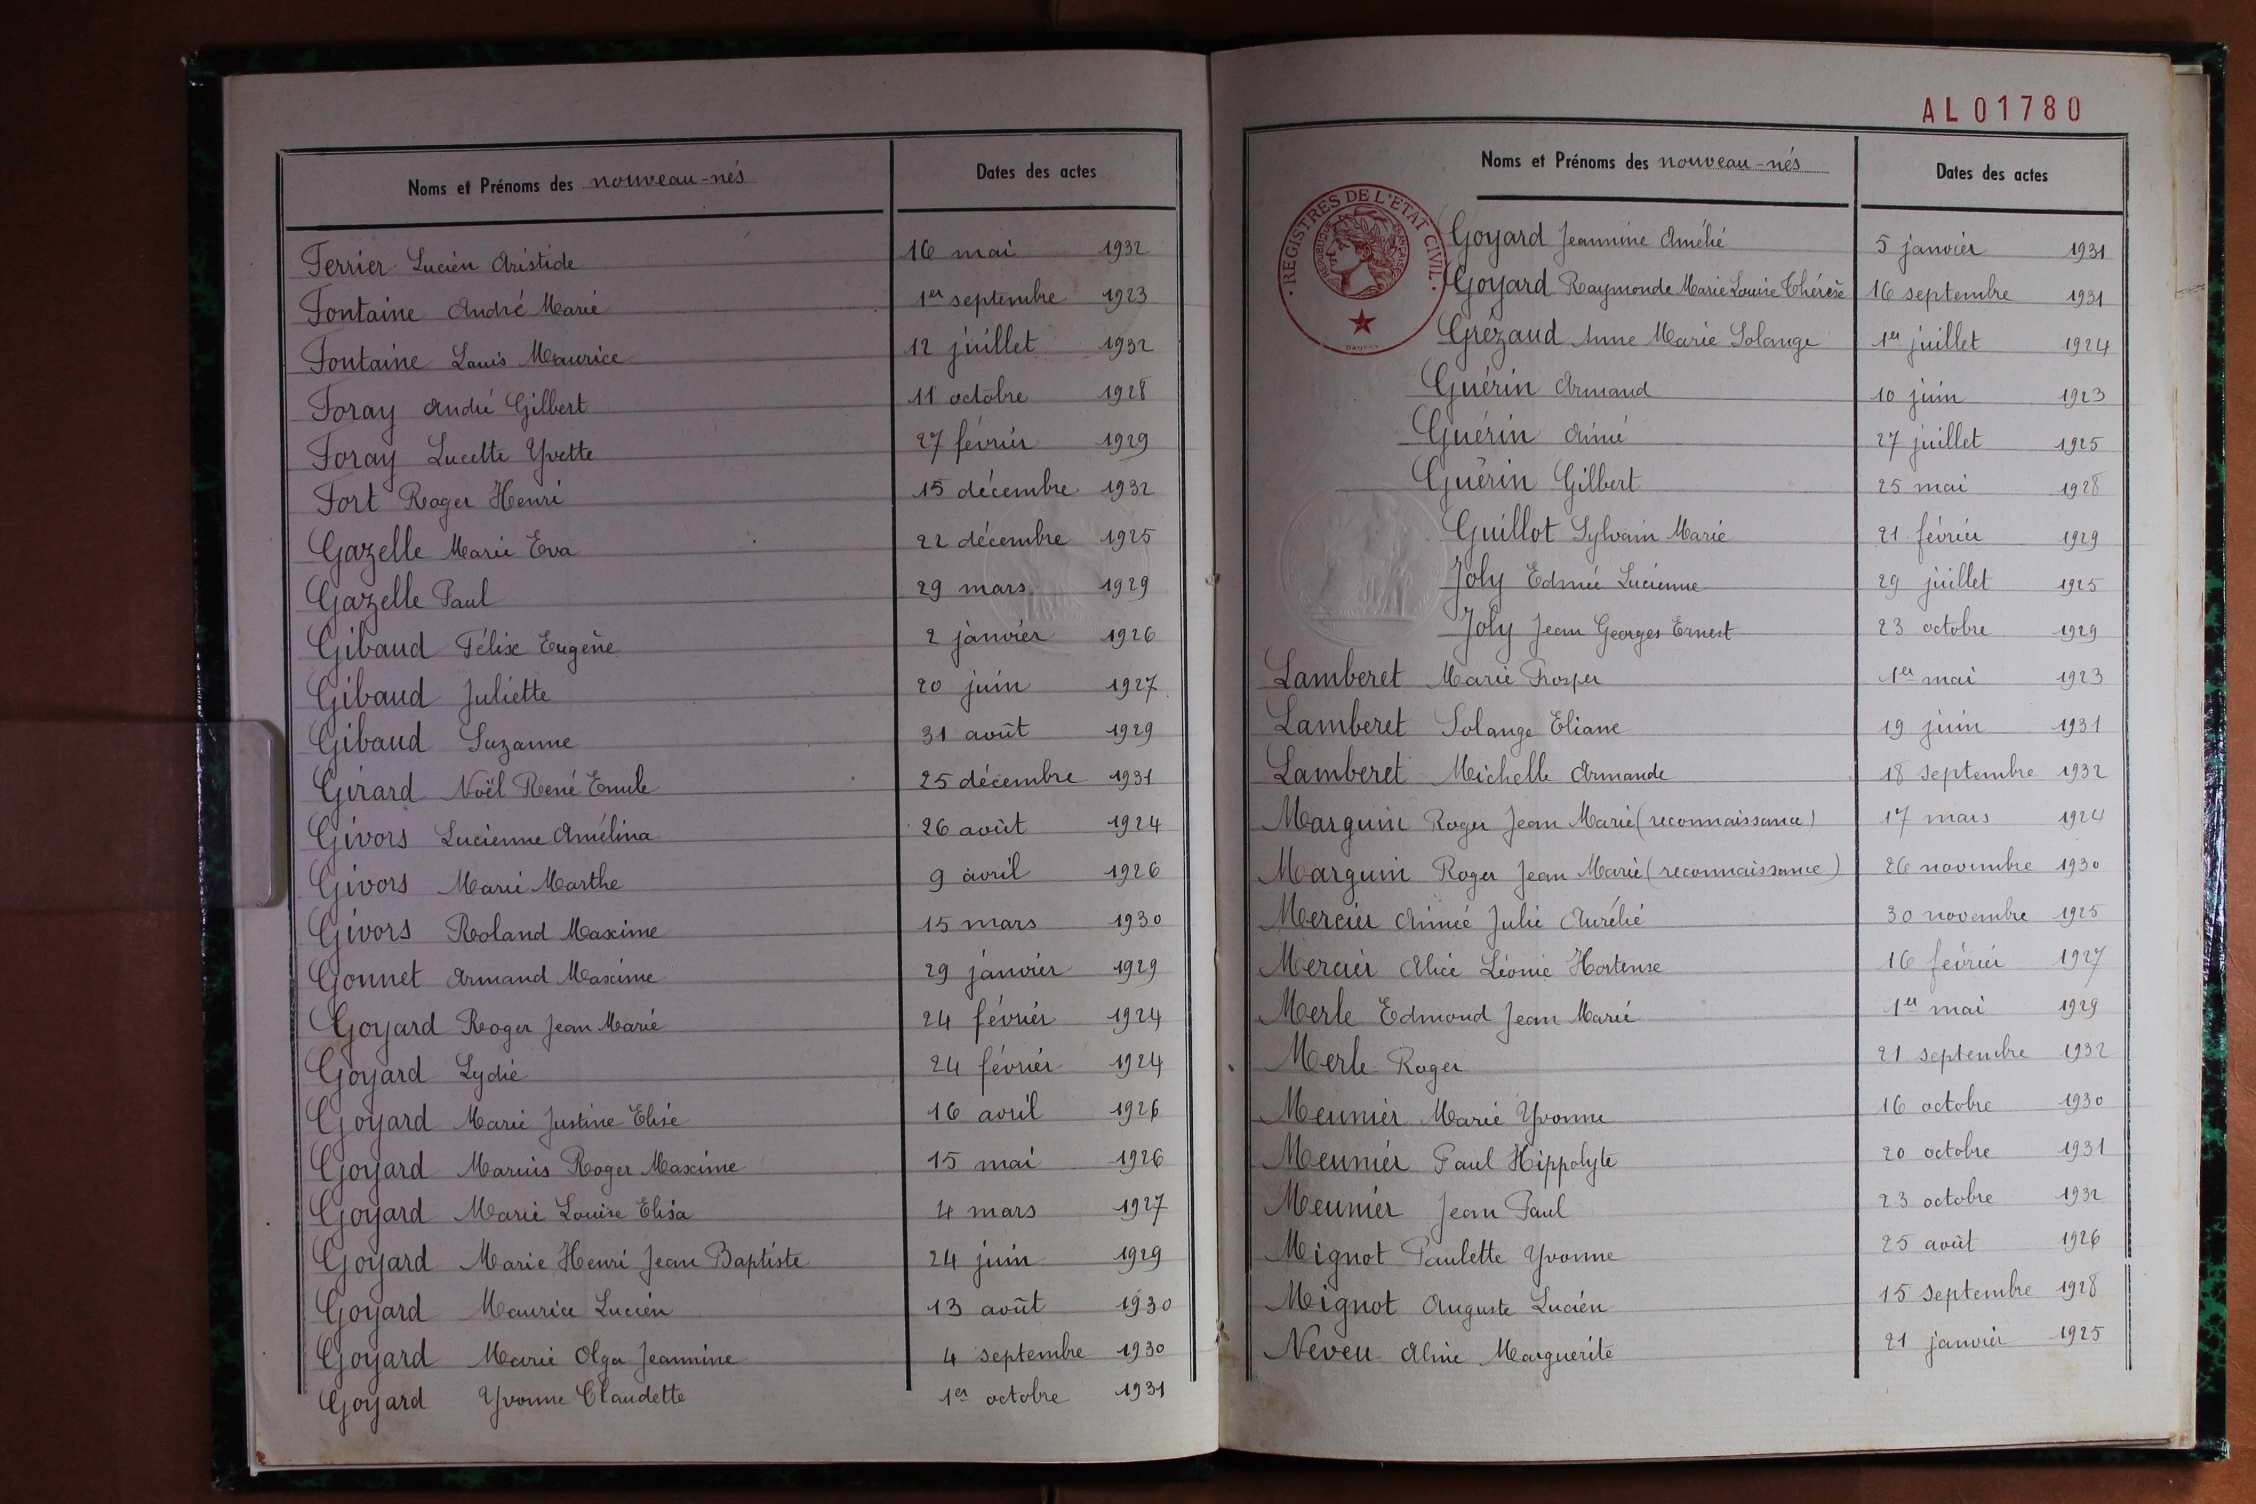 Noms et Prénoms des nouveau-nés Dates des actes
Ferrier Lucien Aristide 16 mai 1932
Fontaine André Marie 1er septembre 1923
Fontaine Louis Maurice 12 juillet 1932
Foray André Gilbert 11 octobre 1928
Foray Lucette Yvette 27 février 1929
Fort Roger Henri 15 décembre 1932
Gazelle Marie Eva 22 décembre 1925
Gazelle Paul 29 mars 1929
Gibaud Félix Eugène 2 janvier 1926
Gibaud Juliette 20 juin 1927
Gibaud Suzanne 31 août 1929
Girard Noël René Emile 25 décembre 1931
Givors Lucienne Amélina 26 août 1924
Givors Marie Marthe 9 avril 1926
Givors Roland Maxime 15 mars 1930
Gonnet Armand Maxime 29 janvier 1929
Goyard Roger Jean Marie 24 février 1924
Goyard Lydie 24 février 1924
Goyard Marie Justine Elise 16 avril 1926
Goyard Marius Roger Maxime 15 mai 1926
Goyard Marie Louise Elisa 4 mars 1927
Goyard Marie Henri Jean Baptiste 24 juin 1929
Goyard Maurice Lucien 13 août 1930
Goyard Marie Olga Jeannine 4 septembre 1930
Goyard Yvonne Claudette 1er octobre 1931
AL01780
Noms et Prénoms des nouveau-nés Dates des actes
REGISTRES DE L'ETAT CIVIL
REPUBLIQUE FRANCAISE
Goyard Jeannine Amélie 5 janvier 1931
Goyard Raymonde Marie Louise Thérèse 16 septembre 1931
Grézaud Anne Marie Solange 1er juillet 1924
Guérin Armand 10 juin 1923
Guérin Aimé 27 juillet 1925
Guérin Gilbert 25 mai 1928
Guillot Sylvain Marie 21 février 1929
Joly Edmée Lucienne 29 juillet 1925
Joly Jean Georges Ernest 23 octobre 1929
Lamberet Marie Prosper 1er mai 1923
Lamberet Solange Eliane 19 juin 1931
Lamberet Michelle Armande 18 septembre 1932
Marguin Roger Jean Marie (reconnaissance) 17 mars 1924
Marguin Roger Jean Marie (reconnaissance) 26 novembre 1930
Mercier Aimée Julie Aurélie 30 novembre 1925
Mercier Alice Léonie Hortense 16 février 1927
Merle Edmond Jean Marie 1er mai 1929
Merle Roger 21 septembre 1932
Meunier Marie Yvonne 16 octobre 1930
Meunier Paul Hippolyte 20 octobre 1931
Meunier Jean Paul 23 octobre 1932
Mignot Paulette Yvonne 25 août 1926
Mignot Auguste Lucien 15 septembre 1928
Neveu Aline Marguerite 21 janvier 1925